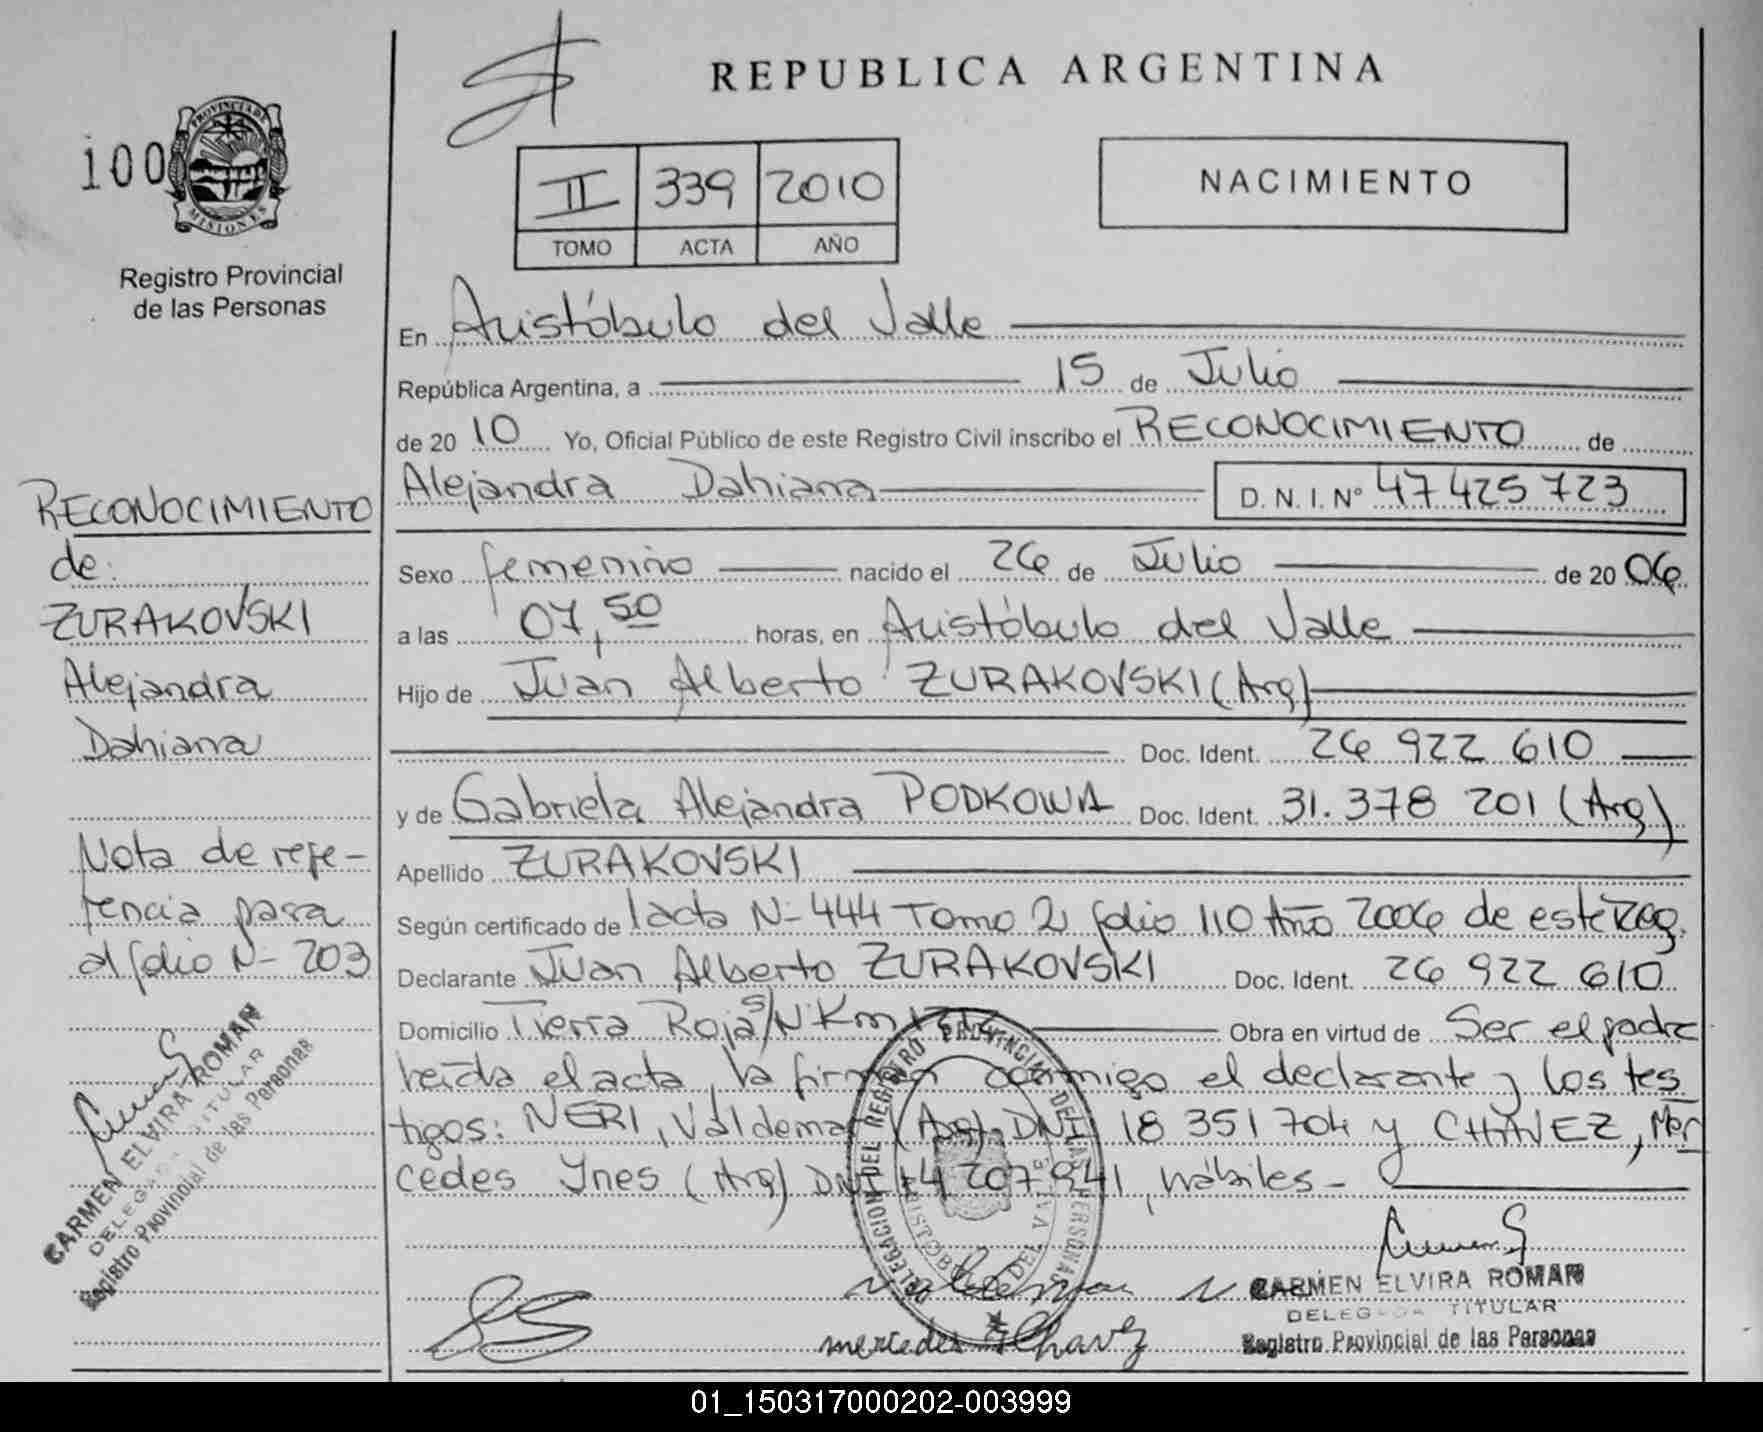 REPUBLICA ARGENTINA
100
PROVINCIA DE
MISIONES
Registro Provincial
de las Personas
II 339 2010
TOMO ACTA AÑO
NACIMIENTO
En Aristóbulo del Valle
República Argentina, a 15 de Julio
de 20 10 Yo, Oficial Público de este Registro Civil inscribo el RECONOCIMIENTO de
Alejandra Dahiana D. N. I. Nº 47 425 723
Sexo femenino nacido el 26 de Julio de 20 06
a las 07,50 horas, en Aristóbulo del Valle
Hijo de Juan Alberto ZURAKOVSKI (Arg)
Doc. Ident. 26 922 610
y de Gabriela Alejandra PODKOWA Doc. Ident. 31.378 201 (Arg)
Apellido ZURAKOVSKI
Según certificado de lacta N- 444 Tomo 2 folio 110 Año 2006 de este Reg.
Declarante Juan Alberto ZURAKOVSKI Doc. Ident. 26 922 610
Domicilio Tierra Roja S/N Km Obra en virtud de Ser el padre
heída el acta, la firman conmigo el declarante y los tes
tigos: NERI, Valdemar (Arg) DNI 18 351 704 y CHAVEZ, Mer
cedes Ynes (Arg) DNI 14 207 941, hábiles-
RECONOCIMIENTO
de:
ZURAKOVSKI
Alejandra
Dahiana
Nota de refe-
rencia pasa
al folio N- 203
CARMEN ELVIRA ROMAN
DELEGADA TITULAR
Registro Provincial de las Personas
DELEGACION DEL REGISTRO PROVINCIAL DE LAS PERSONAS
ARISTOBULO DEL VALLE
Valdemar N
mercedes Chavez
CARMEN ELVIRA ROMAN
DELEGADA TITULAR
Registro Provincial de las Personas
01_150317000202-003999